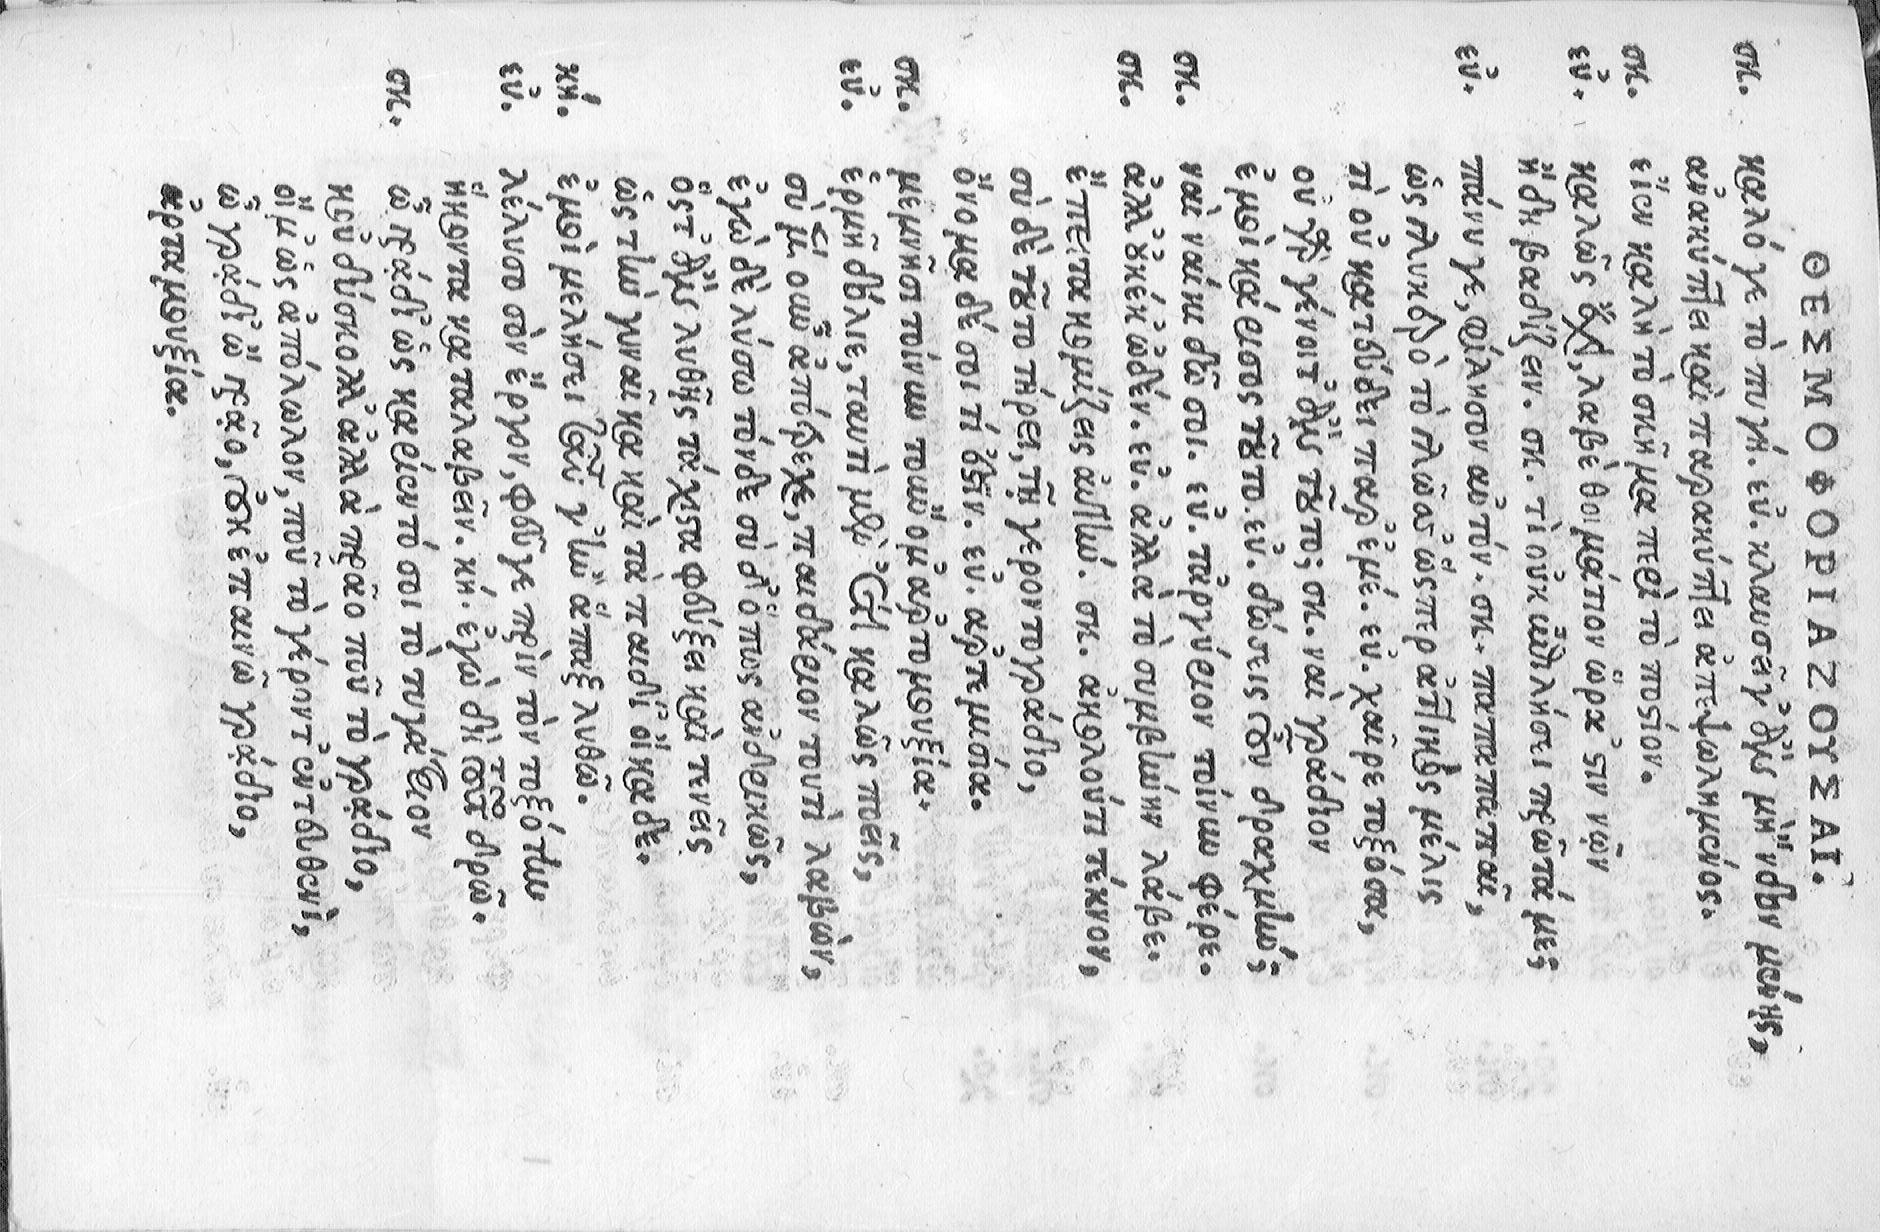 ΘΕΣΜΟΦΟΡΙΑΖΟΥΣΑΙ.
σκ. καλό γε τὸ πυγή. εὐ. κλαυσἄγ' ἢν μὴ 'νδον μένῃς,
ἀνακύπτει καὶ παρακύπτει ἀπεψωλημένος.
σκ. εἶεν καλὴ τὸ σκῆμα περὶ τὸ πόστιον.
εὐ. καλῶς ἔχει, λαβὲ θοιμάτιον ὥρα 'στιν νῷν
ἤδη βαδίζειν. σκ. τί οὐκ ἐπιλήσει πρῶτά με;
εὐ. πάνυ γε, φίλησον αὐτόν. σκ. παπαπαπαῖ,
ὡς γλυκερὸ τὸ γλῶσσ' ὥσπερ ἀττικὸς μέλις
τί οὐ κατεύδει παρ' ἐμέ. εὐ. χαῖρε τοξότα,
οὐ γὰρ γένοιτ' ἂν τοῦτο; σκ. ναὶ γράδιον
ἐμοὶ κάρισο τοῦτο. εὐ. δώσεις οὖν δραχμήν;
σκ. ναὶ ναίκι δῶ σοι. εὐ. τἀργύριον τοίνυν φέρε.
σκ. ἀλλ' οὐκ ἔκη ὠδέν. εὐ. ἀλλὰ τὸ συμβήνην λάβε.
ἔπειτα κομίζεις αὖτιν. σκ. ἀκολούτι τέκνον,
σὺ δὲ τοῦτο τήρει, τῇ γέροντο γράδιο,
ὄνομα δέ σοι τί ἐστιν. εὐ. ἀρτεμισία.
σκ. μεμνῆσι τοίνυν τοὔνομ' ἀρταμουξία.
εὐ. ἑρμῆ δόλιε, ταυτὶ μὲν ἔτι καλῶς ποιεῖς,
σὺ μὲν οὖν ἀπότρεχε, παιδάριον τουτὶ λαβὼν,
ἐγὼ δὲ λύσω τόνδε σὺ δ' ὅπως ἀνδρικῶς,
ὅταν λυθῇς τάχιστα φεύξει καὶ τενεῖς
ὡς τὴν γυναῖκα καὶ τὰ παιδί' οἴκαδε.
κη. ἐμοὶ μελήσει ταῦτά γ' ἢν ἅπαξ λυθῶ.
εὐ. λέλυσο σὸν ἔργον, φεῦγε πρὶν τὸν τοξότην
ἥκοντα καταλαβεῖν. κη. ἐγὼ δὴ τοῦτο δρῶ.
σκ. ὦ γράδι' ὡς καρίεντό σοι τὸ τυγάτριον
κοὐ δύσκολλ' ἀλλὰ πρᾶο ποῦ τὸ γράδιο,
οἴμ' ὡς ἀπόλωλον, ποῦ τὸ γέροντ' ἐντευθενὶ,
ὦ γράδι' ὦ γρᾶο, οὐκ ἐπαινῶ γράδιο,
ἀρταμουξία.